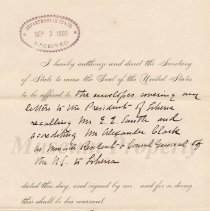 DEPARTMENT OF STATE
SEP 2 1890
RECEIVED
I hereby authorize and direct the Secretary
of State to cause the Seal of the United States
to be affixed to the envelopes covering my
letters to the President of Liberia
recalling Mr. E. E. Smith and
accrediting Mr Alexander Clark
as Minister Resident & Consul General of
the U.S. to Liberia
dated this day, and signed by me: and for so doing
this shall be his warrant.